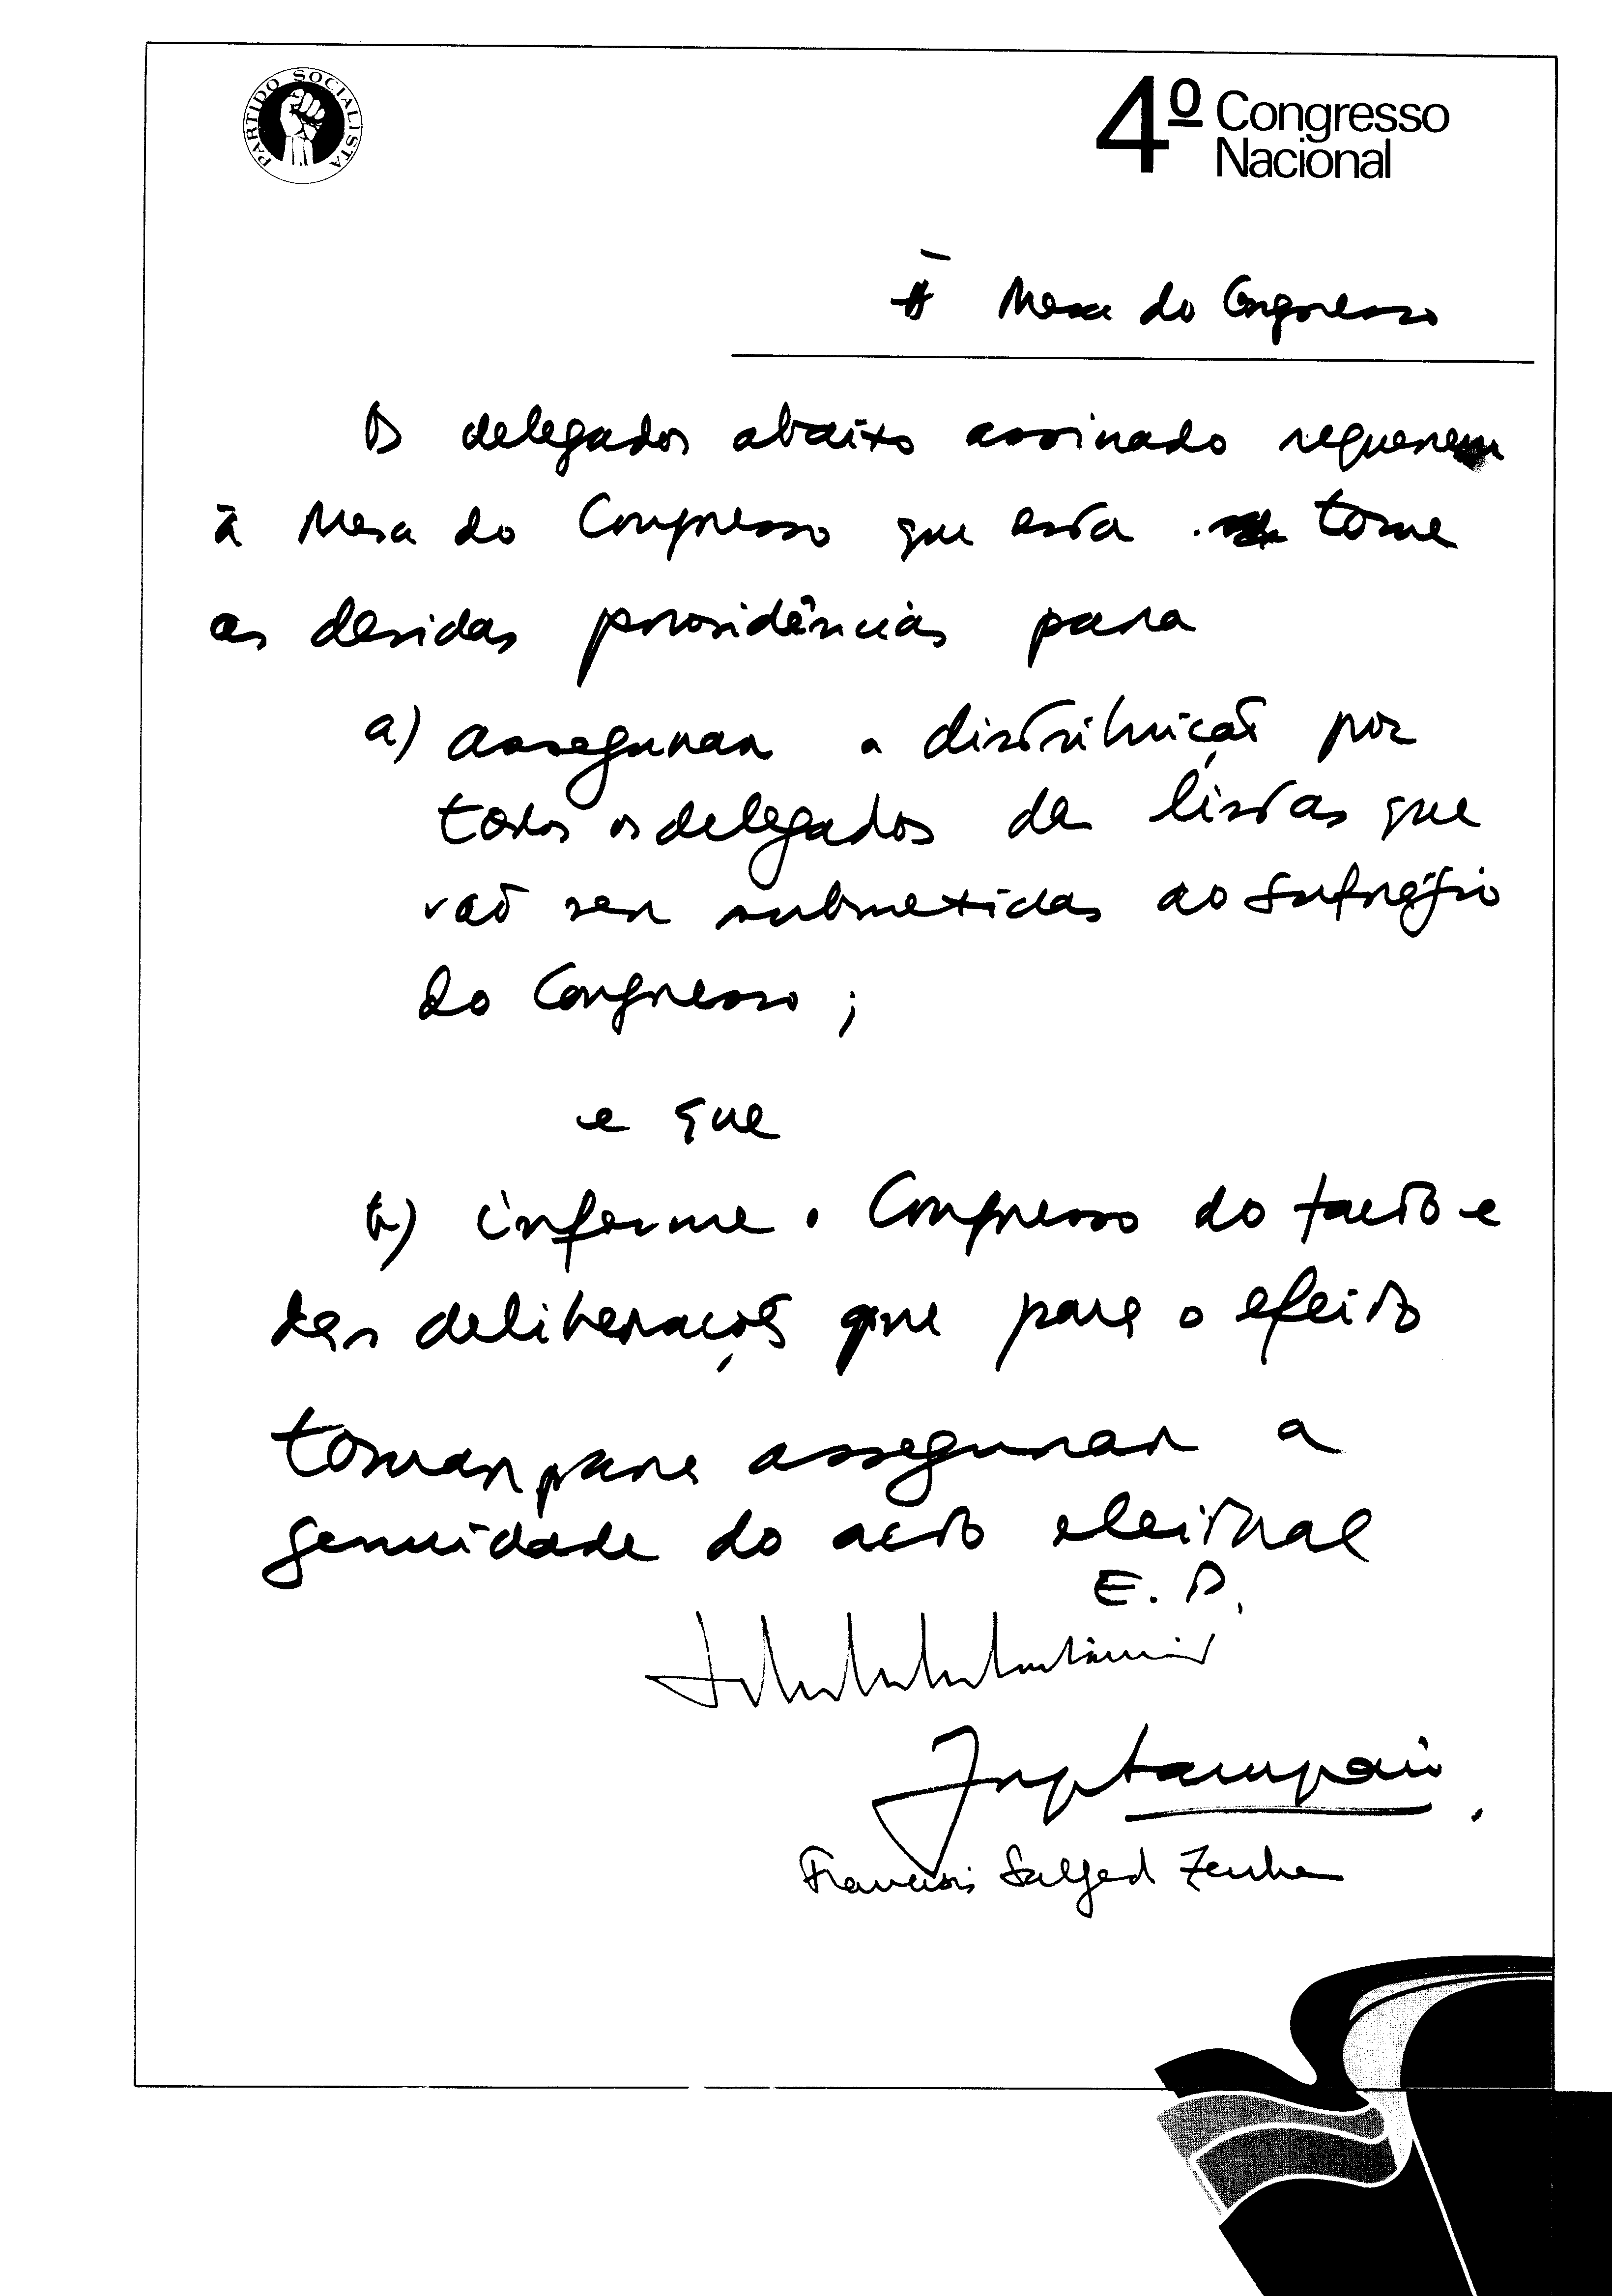 PARTIDO SOCIALISTA
4º Congresso
Nacional
À Mesa do Congresso
Os delegados abaixo assinado requerem
à Mesa do Congresso que esta tome
as devidas providências para
a) assegurar a distribuição por
todos os delegados de listas que
vão ser submetidas ao sufrágio
do Congresso;
e que
b) informe o Congresso do facto e
das deliberações que para o efeito
tomar para assegurar a
genuidade do acto eleitoral
E. D.
Jorge Sampaio
Francisco Salgado Zenha